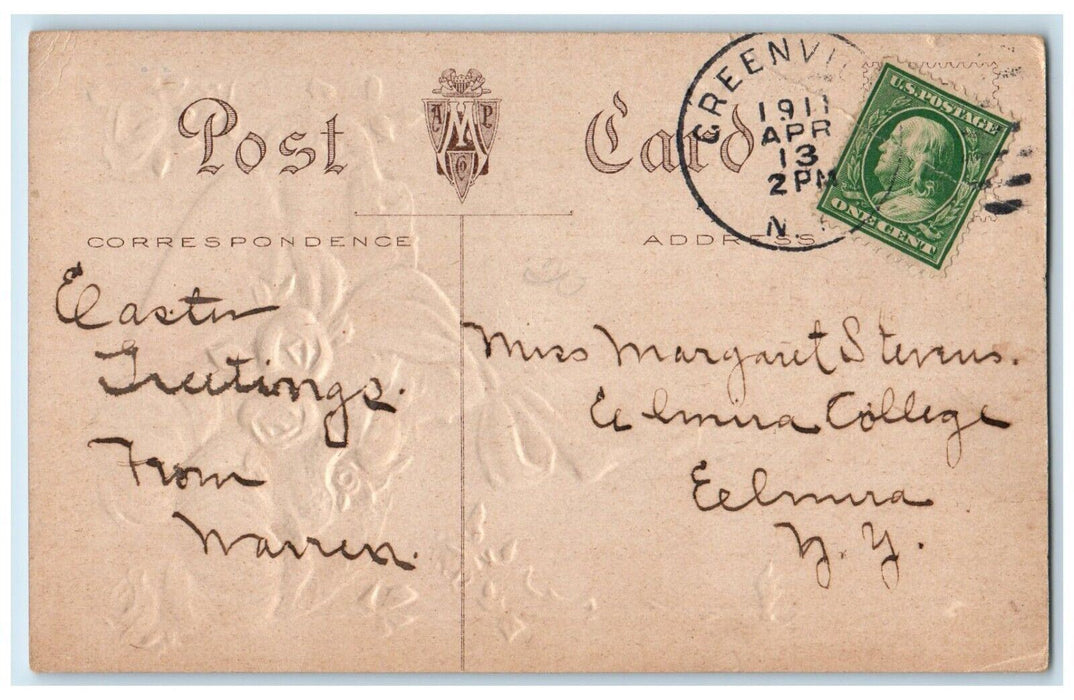 Post Card
A M P
Co
GREENVI
1911
APR
13
2 PM
N.
U.S. POSTAGE
ONE CENT
CORRESPONDENCE
ADDRESS
Easter
Greetings.
From
Warren.
Miss Margaret Stevens.
Elmira College
Elmira
N. Y.